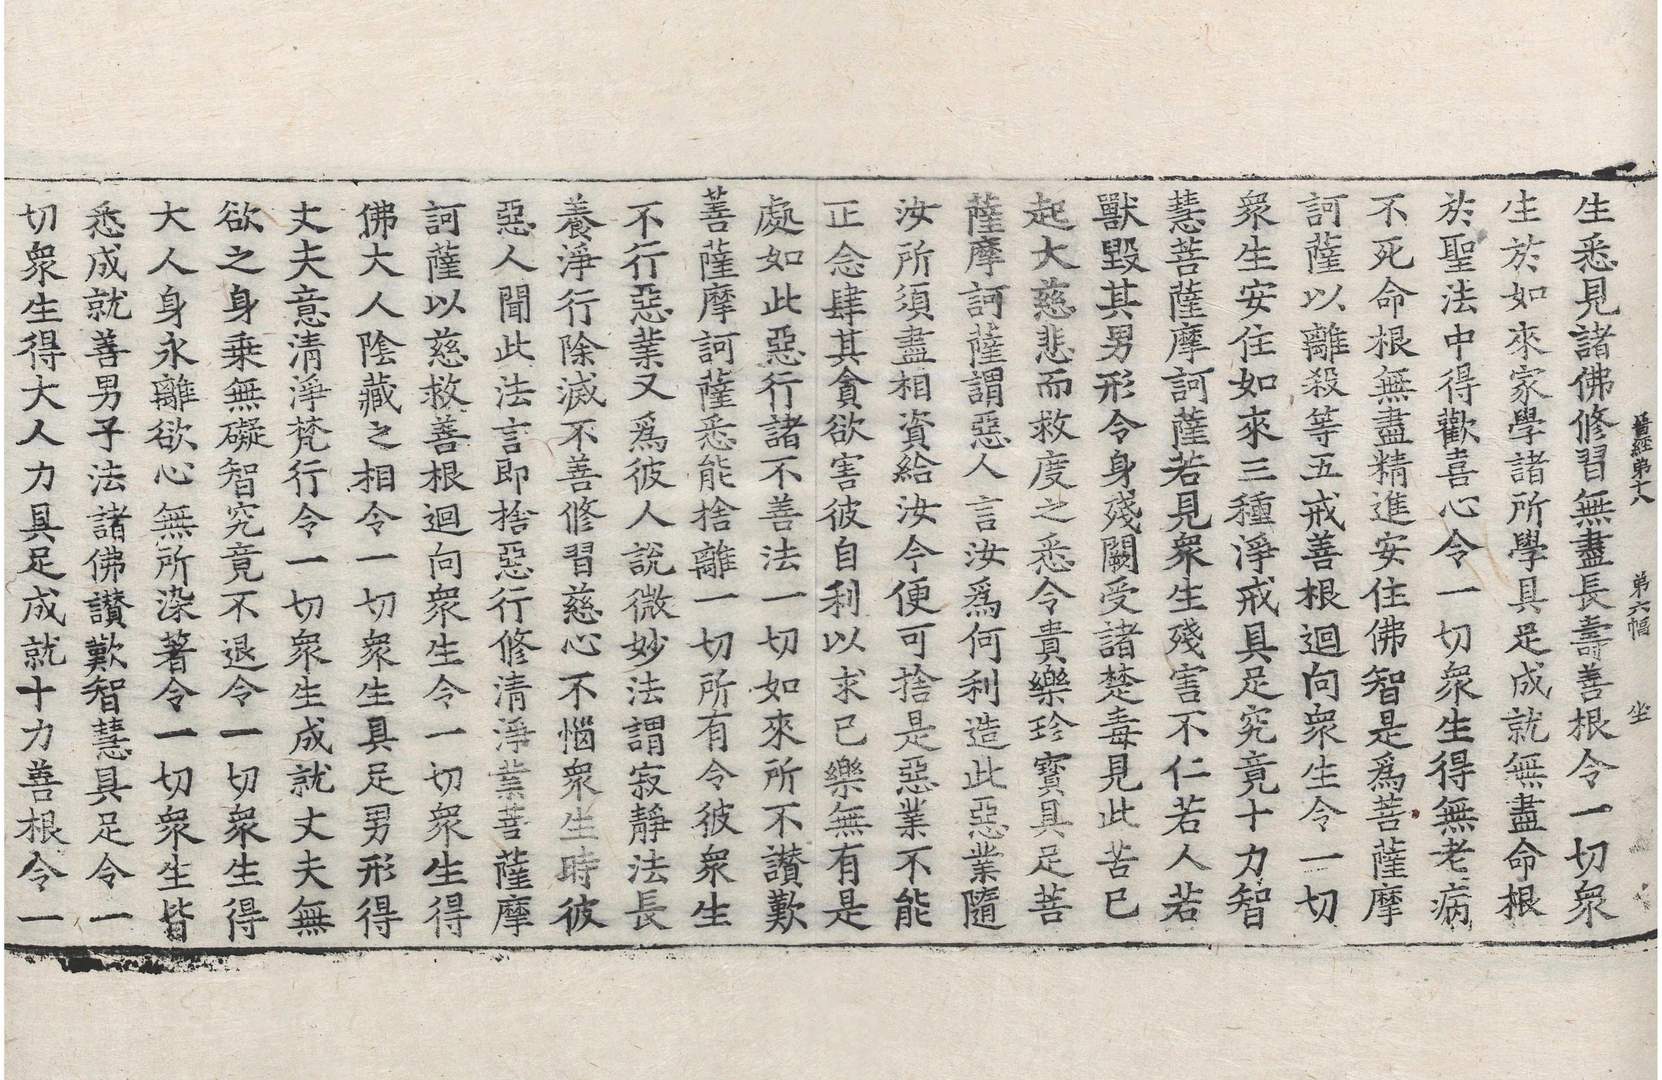 晉經第十八 第六幅 坐
生悉見諸佛修習無盡長壽善根令一切衆
生於如來家學諸所學具足成就無盡命根
於聖法中得歡喜心令一切衆生得無老病
不死命根無盡精進安住佛智是爲菩薩摩
訶薩以離殺等五戒善根迴向衆生令一切
衆生安住如來三種淨戒具足究竟十力智
慧菩薩摩訶薩若見衆生殘害不仁若人若
獸毀其男形令身殘闕受諸楚毒見此苦已
起大慈悲而救度之悉令貴樂珍寶具足菩
薩摩訶薩謂惡人言汝爲何利造此惡業隨
汝所須盡相資給汝今便可捨是惡業不能
正念肆其貪欲害彼自利以求已樂無有是
處如此惡行諸不善法一切如來所不讃歎
菩薩摩訶薩悉能捨離一切所有令彼衆生
不行惡業又爲彼人說微妙法謂寂靜法長
養淨行除滅不善修習慈心不惱衆生時彼
惡人聞此法言即捨惡行修清淨業菩薩摩
訶薩以慈救善根迴向衆生令一切衆生得
佛大人陰藏之相令一切衆生具足男形得
丈夫意清淨梵行令一切衆生成就丈夫無
欲之身乗無礙智究竟不退令一切衆生得
大人身永離欲心無所染著令一切衆生皆
悉成就善男子法諸佛讃歎智慧具足令一
切衆生得大人力具足成就十力善根令一